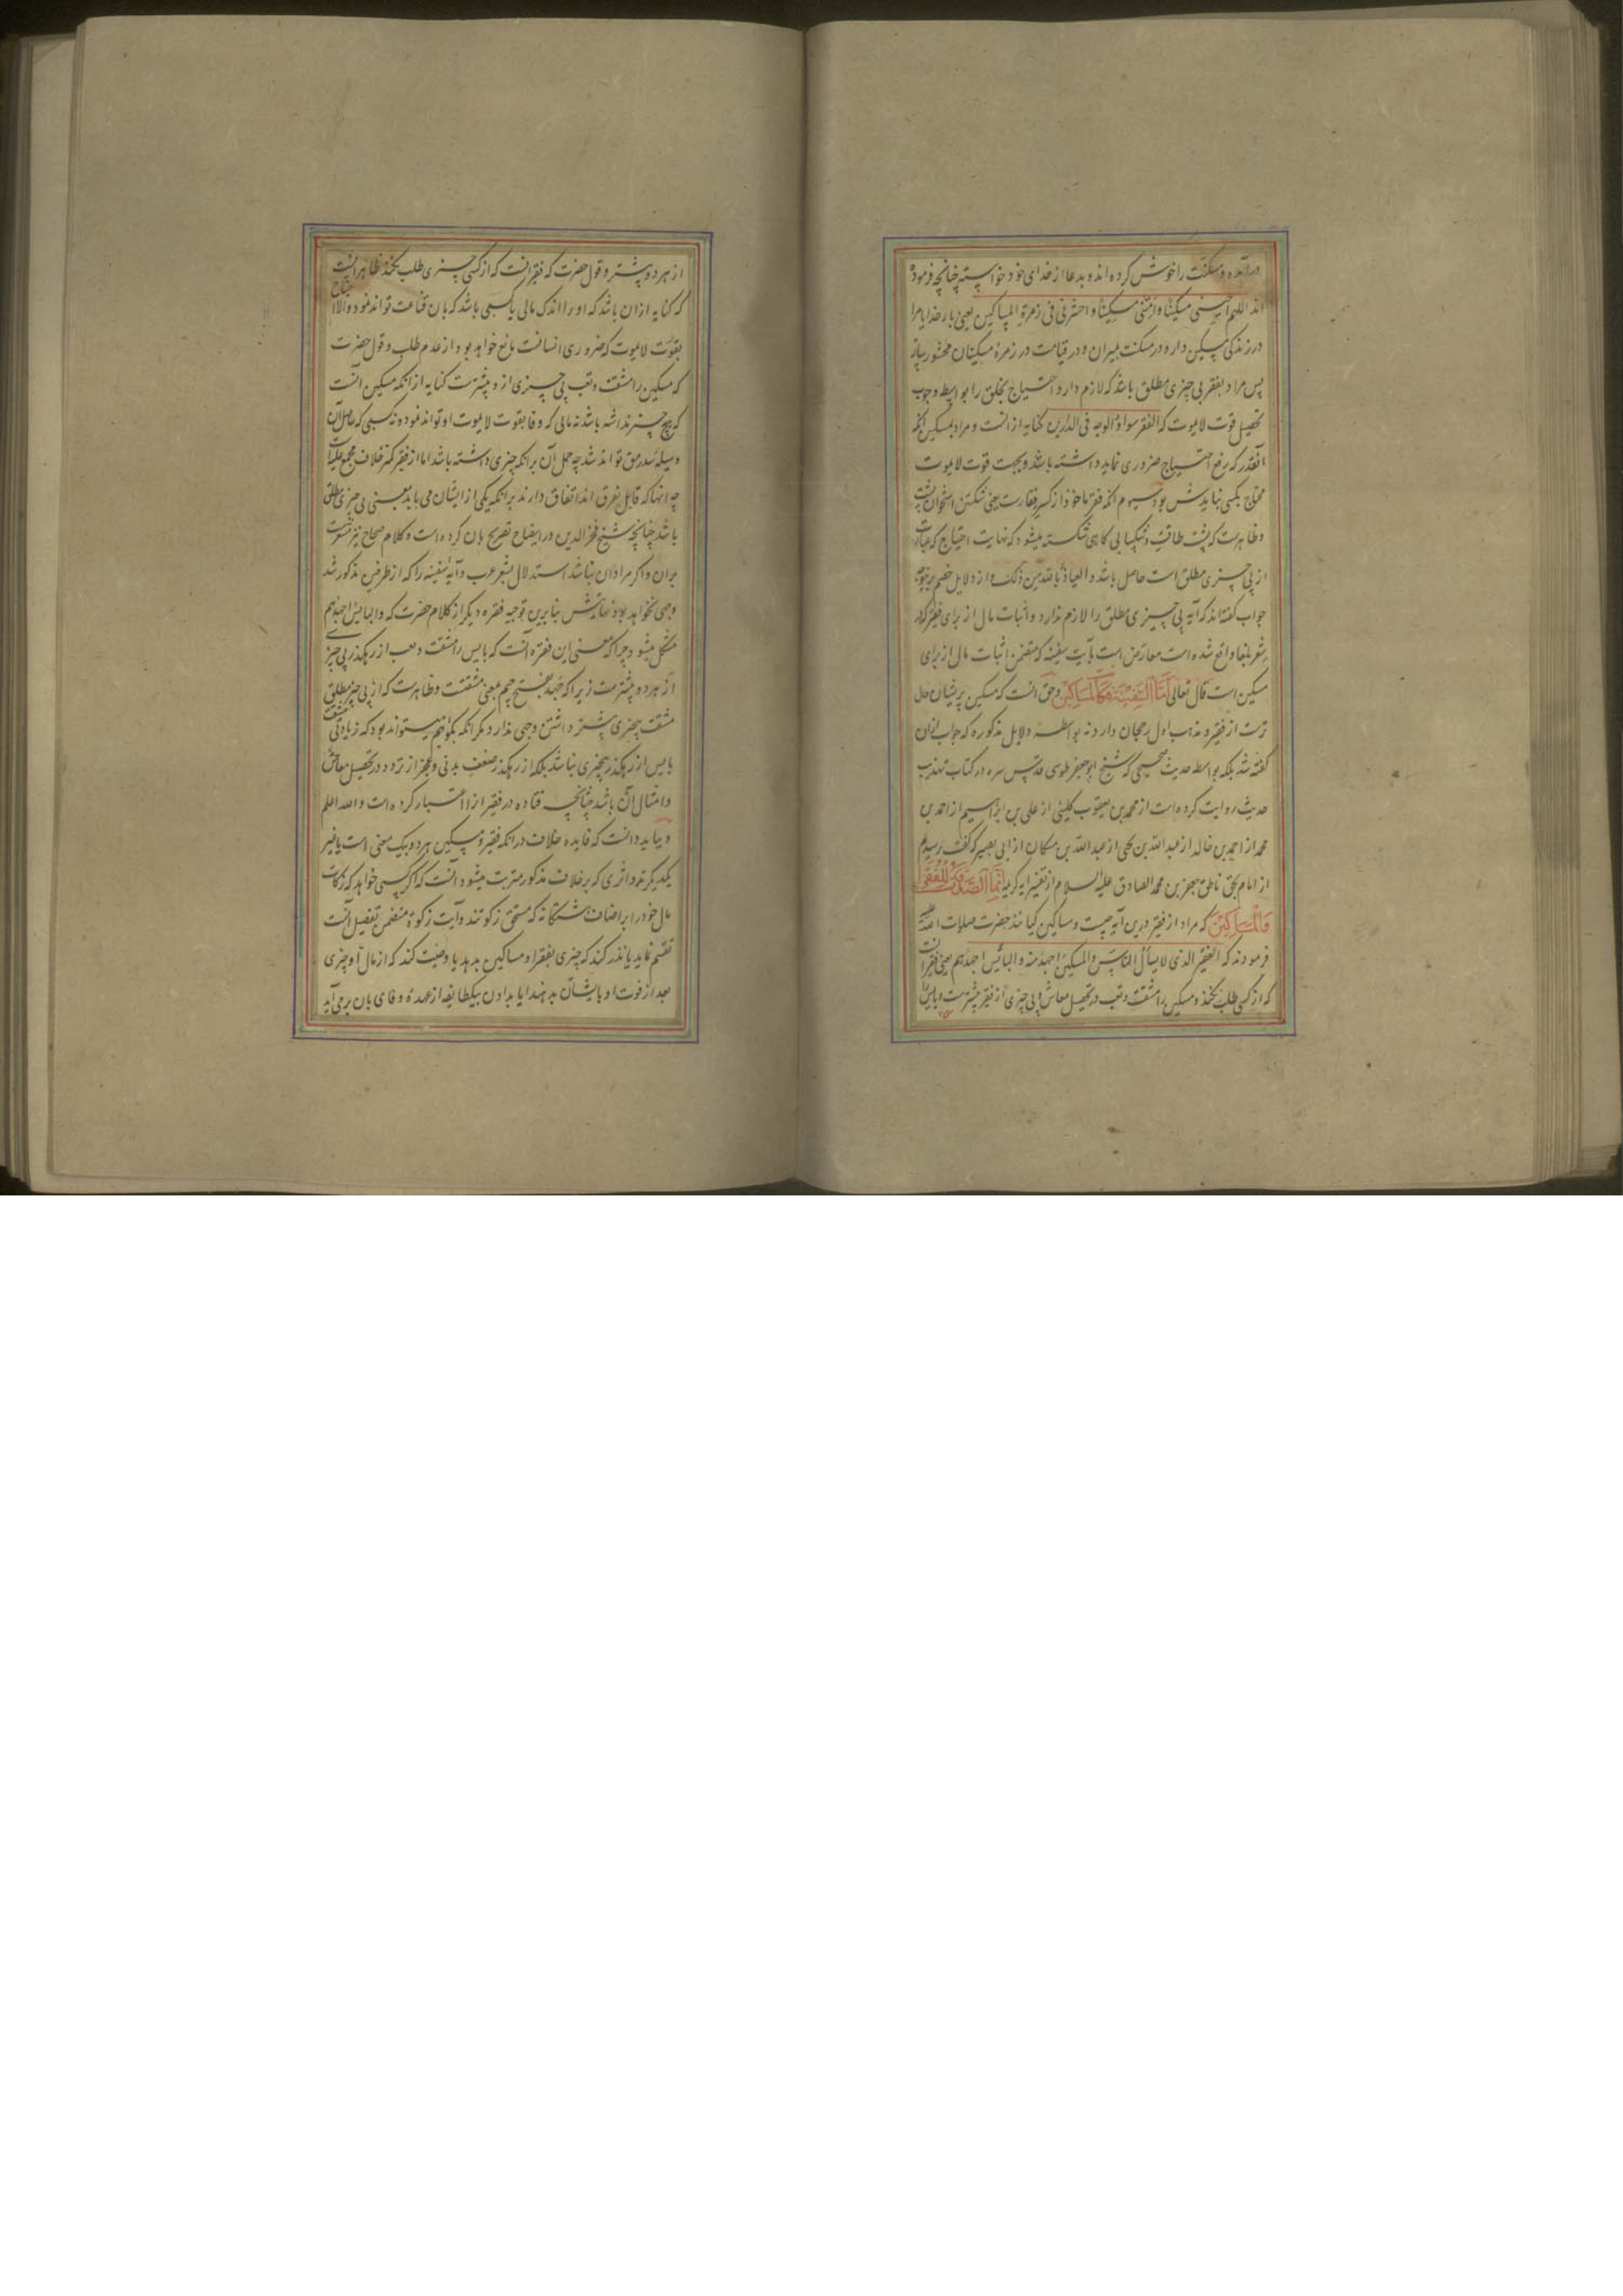 درآمده و مسکنت را خوش کرده اند و بدعا از خدای خود خواسته چنانچه فرموده
اند اللهم احینی مسکینا و امتنی مسکینا و احشرنی فی زمرة المساکین یعنی بار خدایا مرا
در زندکی مسکین دار و در مسکنت بمیران و در قیامت در زمرهٔ مسکینان محشور ساز
پس مراد بفقر بی چیزی مطلق باشد که لازم دارد احتیاج بخلق را بواسطه وجوب
تحصیل قوت لایموت که الفقر سواد الوجه فی الدارین کنایه از انست و مراد بمسکین انکه
انقدر که رفع احتیاج ضروری نماید داشته باشد و بجهت قوت لایموت
محتاج بکسی نبایدش بود سیوم انکه فقر ماخوذ از کسر فقارست یعنی شکستن استخوان پشت
و ظاهرست که پشت طاقت و شکیبایی کاهی شکسته میشود که نهایت احتیاج که عبارت
از بی چیزی مطلق است حاصل باشد و العیاذ بالله من ذلک و از دلایل خصم برینوجه
جواب کفته اند که آیه بی چیزی مطلق را لازم ندارد و اثبات مال از برای فقیر که در
شعر بلغا واقع شده است معارض است بآیت سفینه که متضمن اثبات مال از برای
مسکین است قال تعالی اَمَّا السَّفِینَةُ فَکَانَتْ لِمَسَاکِینَ و حق انست که مسکین پریشان حال
ترست از فقیر و مذهب اول رجحان دارد نه بواسطه دلایل مذکوره که جواب ازان
کفته شد بلکه بواسطه حدیث صحیحی که شیخ ابوجعفر طوسی قدس سره در کتاب تهذیب
حدیث روایت کرده است از محمد بن یعقوب کلینی از علی بن ابراهیم از احمد بن
محمد از احمد بن خالد از عبدالله بن یحیی از عبدالله بن مسکان از ابی بصیر که کفت رسیدم
از امام بحق ناطق جعفر بن محمد الصادق علیه السلام از تفسیر ایه کریمه اِنَّمَا الصَّدَقَاتُ لِلْفُقَرَاءِ
وَالْمَسَاکِینِ که مراد از فقیر درین آیه چیست و مساکین کیانند حضرت صلوات الله علیه
فرمودند که الفقیر الذی لا یسأل الناس و المسکین اجهد منه و البائس اجهدهم یعنی فقیر انست
که از کسی طلب نکند و مسکین را مشقت و تعب در تحصیل معاش و بی چیزی از فقیر بیشترست و بایس را
از هر دو بیشتر و قول حضرت که فقیر انست که از کسی چیزی طلب نکند ظاهرا انست
که کنایه ازان باشد که او را اندک مالی یا کسبی باشد که بان قناعت تواند نمود و الا احتیاج
بقوت لایموت که ضروری انسانست مانع خواهد بود از عدم طلب و قول حضرت
که مسکین را مشقت و تعب بی چیزی از و بیشترست کنایه از انکه مسکین انست
که هیچ چیز نداشته باشد نه مالی که وفا بقوت لایموت او تواند نمود و نه کسبی که حاصل آن
وسیله سد رمق تواند شد چه حمل آن برانکه چیزی داشته باشد اما از فقیر کمتر خلاف مجمع علیه است
چه انها که قایل بفرق اند اتفاق دارند برانکه یکی از ایشان می باید بمعنی بی چیزی مطلق
باشد چنانچه شیخ فخرالدین در ایضاح تصریح بان کرده است و کلام صحاح نیز مشعرست
بران و اکر مراد ان نباشد استدلال بشعر عرب و آیه سفینه را که از طرفین مذکور شد
وجهی نخواهد بود نهایتش بنابرین توجیه فقره دیکر از کلام حضرت که و البایس اجهدهم
مشکل میشود چرا که معنی این فقره انست که بایس را مشقت و تعب از رهکذر بی چیزی
از هر دو بیشترست زیرا که جهد بفتح جیم بمعنی مشقتست و ظاهرست که از بی چیز مطلق
مشقت بیچیزی بیشتر داشتن وجهی ندارد مکر انکه بکوئیم میتواند بود که زیادتی مشقت
بایس از رهکذر بیچیزی نباشد بلکه از رهکذر ضعف بدنی و عجز از تردد در تحصیل معاش
و امثال آن باشد چنانچه قتاده در فقیر انرا اعتبار کرده است و الله اعلم
و بباید دانست که فایده خلاف درانکه فقیر و مسکین هر دو بیک معنی است یا غیر
یکدیکرند و اثری که بر خلاف مذکور مترتب میشود آنست که اکر کسی خواهد که زکات
مال خود را بر اصناف هشتکانه که مستحق زکوتند و آیت زکوة متضمن تفصیل آنست
تقسیم نماید یا نذر کند که چیزی بفقرا و مساکین بدهد یا وصیت کند که از مال او چیزی
بعد از فوت او بایشان بدهند ایا بدادن بیکطایفه از عهدهٔ وفای بان برمی آید